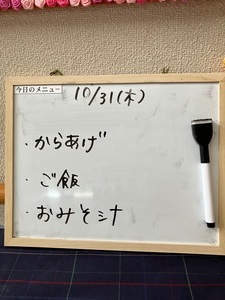 今日のメニュー
10/31(木)
・からあげ
・ご飯
・おみそ汁